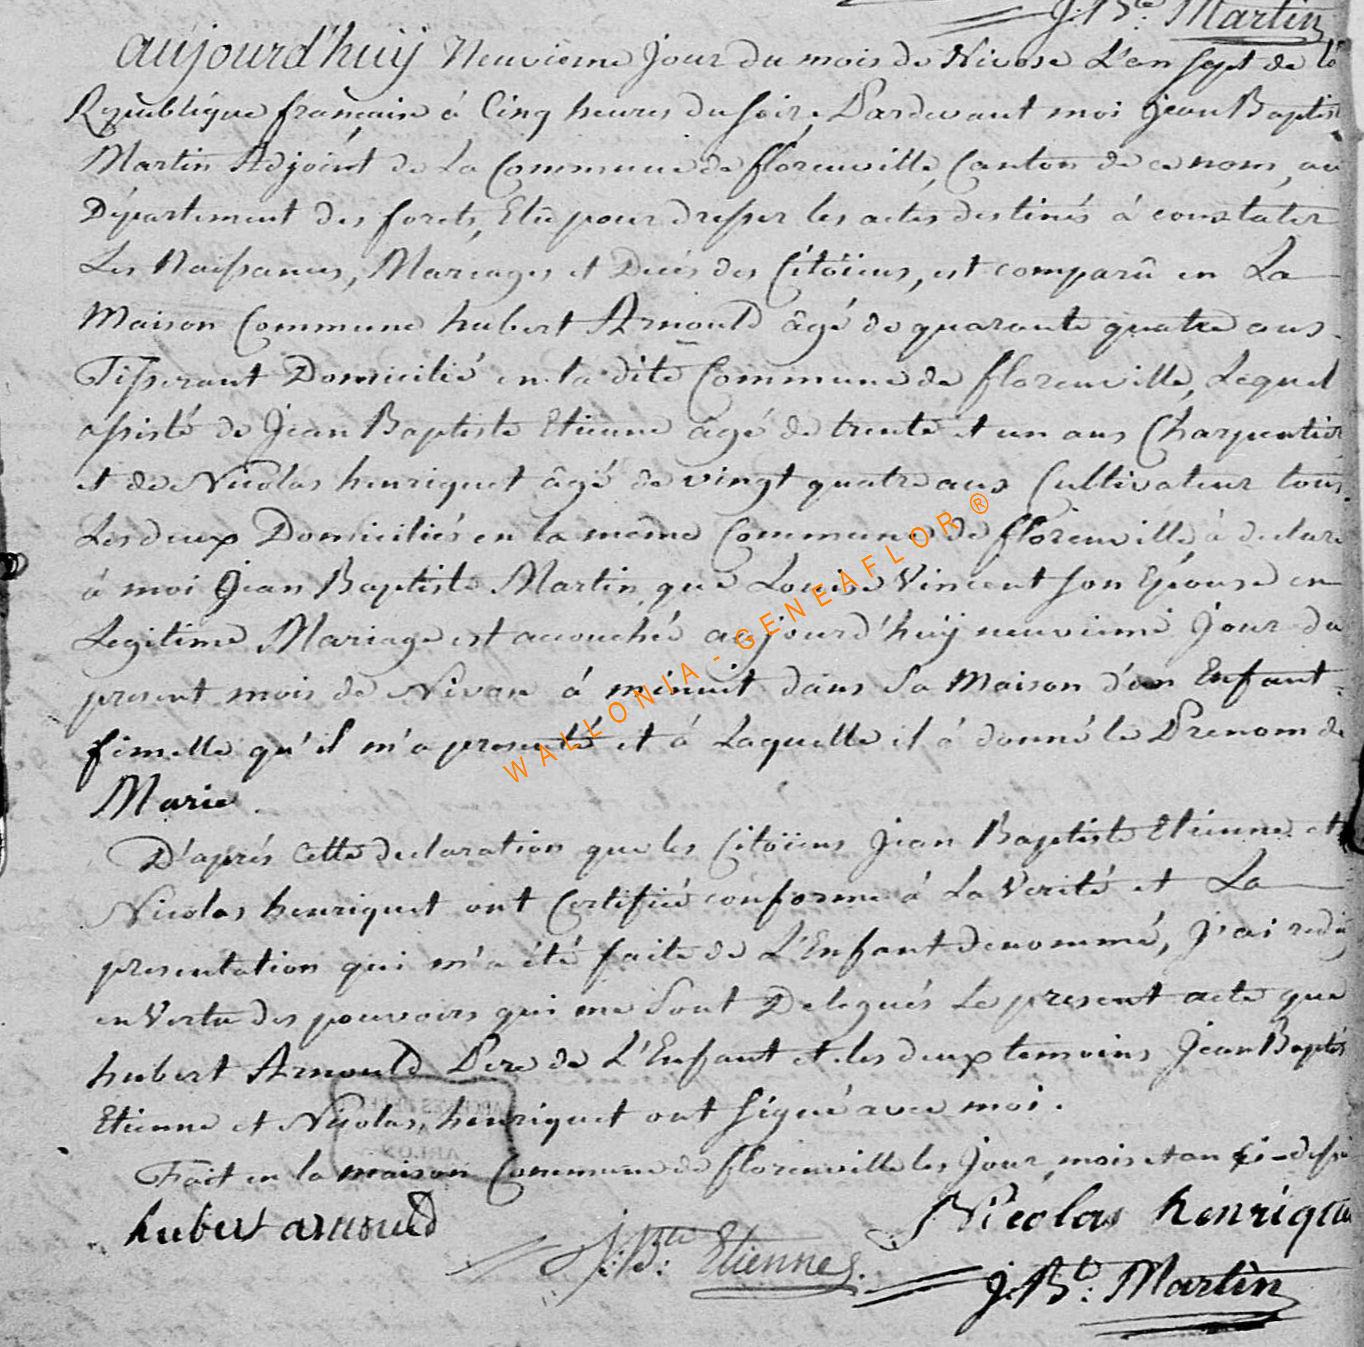 J: Bte: Martin
aujourd'huÿ Neuvieme Jour du mois de Nivose L'an Sept de la
Republique francaise à Cinq heures du soir, Pardevant moi Jean Baptiste
Martin Adjoint de La Commune de florenville, Canton de ce nom, au
Département des forets, Elu pour dresser les actes destinés à constater
Les Naissances, Mariages et Decés des Citoïens, est comparû en La
Maison Commune hubert Arnould âgé de quarante quatre ans
Tisserant Domicilié en la dite Commune de florenville, Lequel
assisté de Jean Baptiste Etienne âgé de trente et un ans Charpentier
et de Nicolas henriquet âgé de vingt quatre ans Cultivateur tous
Les deux Domiciliés en la même Commune de florenville, à declaré
à moi Jean Baptiste Martin que Louise Vincent son Epouse en
Legitime Mariage est accouchée aujourd'huÿ neuvieme Jour du
present mois de Nivose à minuit dans sa Maison d'un Enfant
fimelle qu'il m'a presenté et à Laquelle il à donné le Prenom de
Marie.
D'aprés cette declaration que les Citoïens Jean Baptiste Etienne et
Nicolas henriquet ont Certifiée conforme à La Verité et La
presentation qui m'a été faite de L'Enfant denommé, J'ai redigé
en Vertu des pouvoirs qui me sont Delegués Le present acte que
hubert Arnould Pere de L'Enfant et les deux temoins Jean Baptiste
Etienne et Nicolas henriquet ont signé avec moi.
Fait en la maison Commune de florenville les Jour, mois et an ci-dessus
hubert arnould
Nicolas henriquet
J: Bte: Etienne
J. Bt: Martin
WALLONIA - GENEAFLOR ®